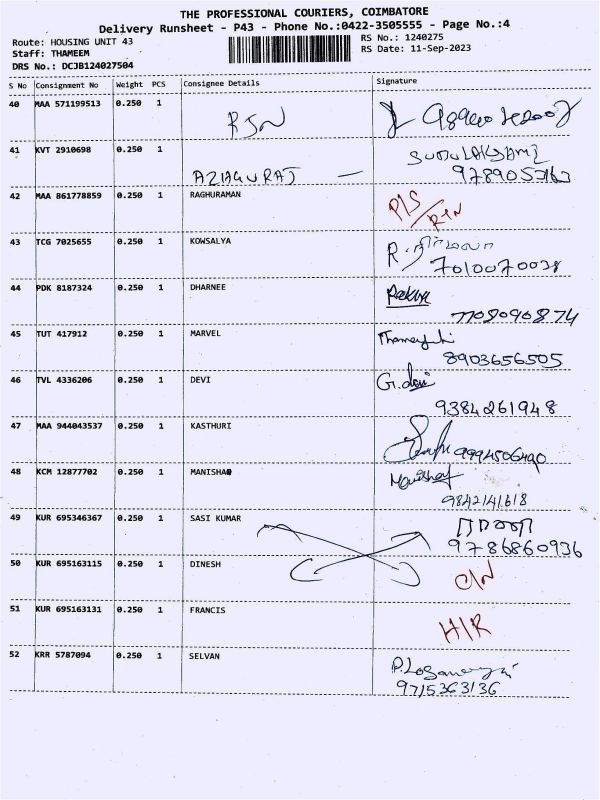 THE PROFESSIONAL COURIERS, COIMBATORE
Delivery Runsheet - P43 - Phone No.:0422-3505555 - Page No.:4
Route: HOUSING UNIT 43 RS No.: 1240275
Staff: THAMEEM RS Date: 11-Sep-2023
DRS No.: DCJB124027504
S No Consignment No Weight PCS Consignee Details Signature
40 MAA 571199513 0.250 1
41 KVT 2910698 0.250 1 AZHAGURAJ — 9789053163
42 MAA 861778859 0.250 1 RAGHURAMAN P/S
43 TCG 7025655 0.250 1 KOWSALYA R. நிர்மலா
7010070038
44 PDK 8187324 0.250 1 DHARNEE
7708090874
45 TUT 417912 0.250 1 MARVEL
8903656505
46 TVL 4336206 0.250 1 DEVI G. devi
9384261948
47 MAA 944043537 0.250 1 KASTHURI 9994506490
48 KCM 12877702 0.250 1 MANISHA
9842141618
49 KUR 695346367 0.250 1 SASI KUMAR
9786860936
50 KUR 695163115 0.250 1 DINESH
51 KUR 695163131 0.250 1 FRANCIS H/R
52 KRR 5787094 0.250 1 SELVAN
9715363136